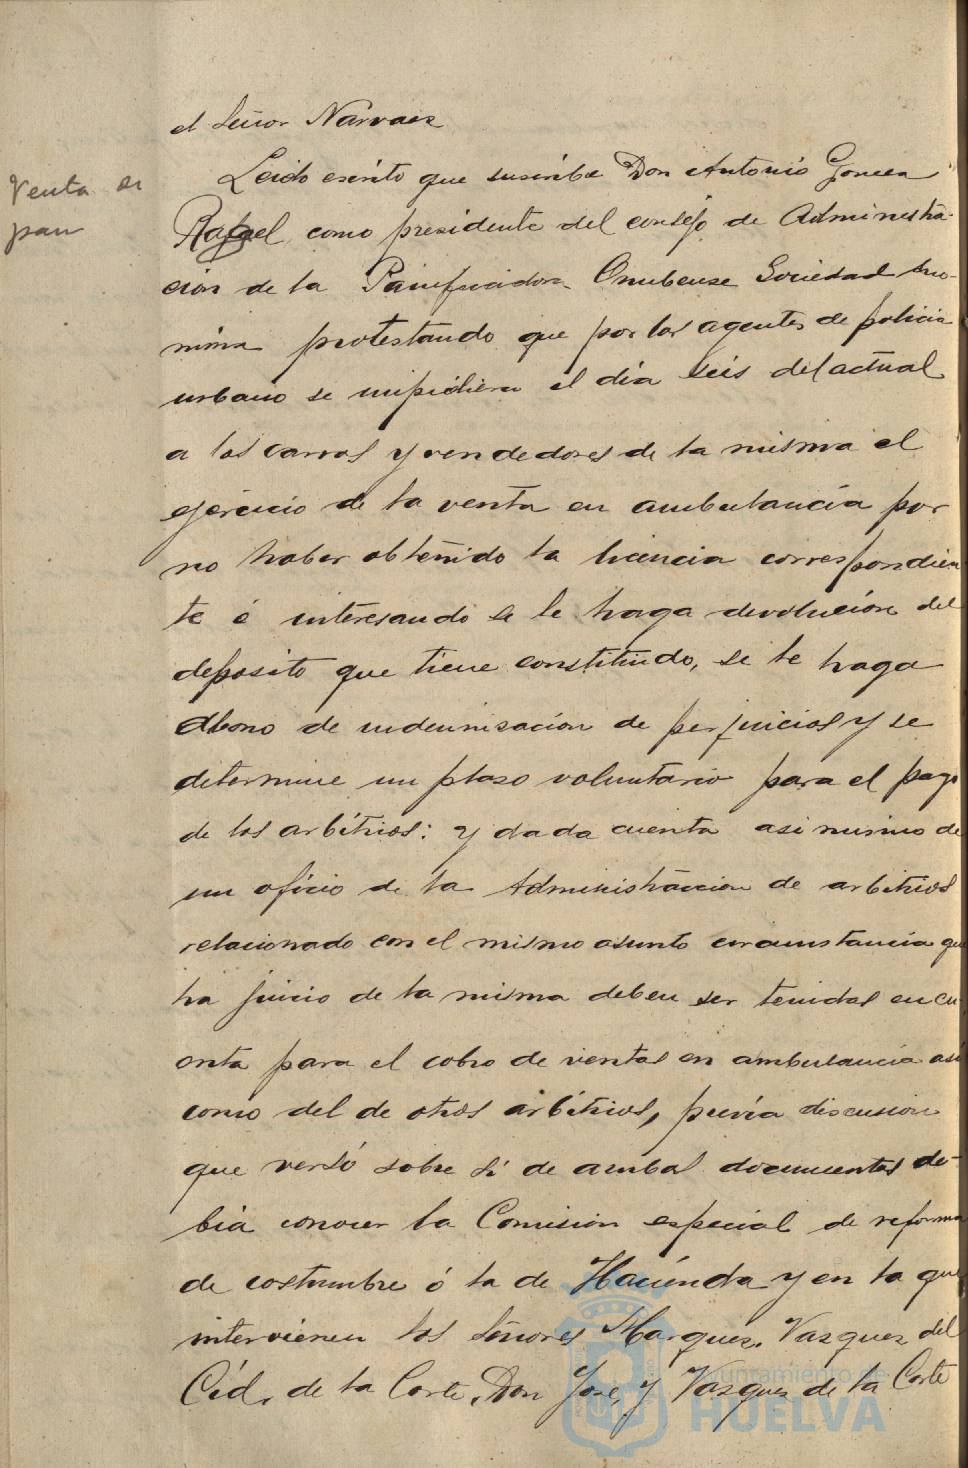 el Señor Narvaez
Venta de
pan
Leido escrito que suscribe Don Antonio
Rafael, como presidente del consejo de Administra-
cion de la Panificadora Onubense Sociedad Anó-
nima protestando que por los agentes de policia
urbano se impidiera el dia seis del actual
a los carros y vendedores de la misma el
ejercicio de la venta en ambulancia por
no haber obtenido la licencia correspondien
te é interesando se le haga devolucion del
deposito que tiene constituido, se le haga
abono de indemnisacion de perjuicios y se
determine un plaso voluntario para el pago
de los arbitrios: y dada cuenta asi mismo de
un oficio de la Administraccion de arbitrios
relacionado con el mismo asunto circunstancia que
ha juicio de la misma deben ser tenidas en cu
enta para el cobro de ventas en ambulancia asi
como del de otros arbitrios, previa discusion
que versó sobre si de ambas documentos de-
bia conocer la Comision especial de reforma
de costumbre ó la de Hacienda y en la que
intervienen los Señores Marquez, Vazquez del
Cid, de la Corte, Don José, y Vazquez de la Corte
Ayuntamiento de
HUELVA